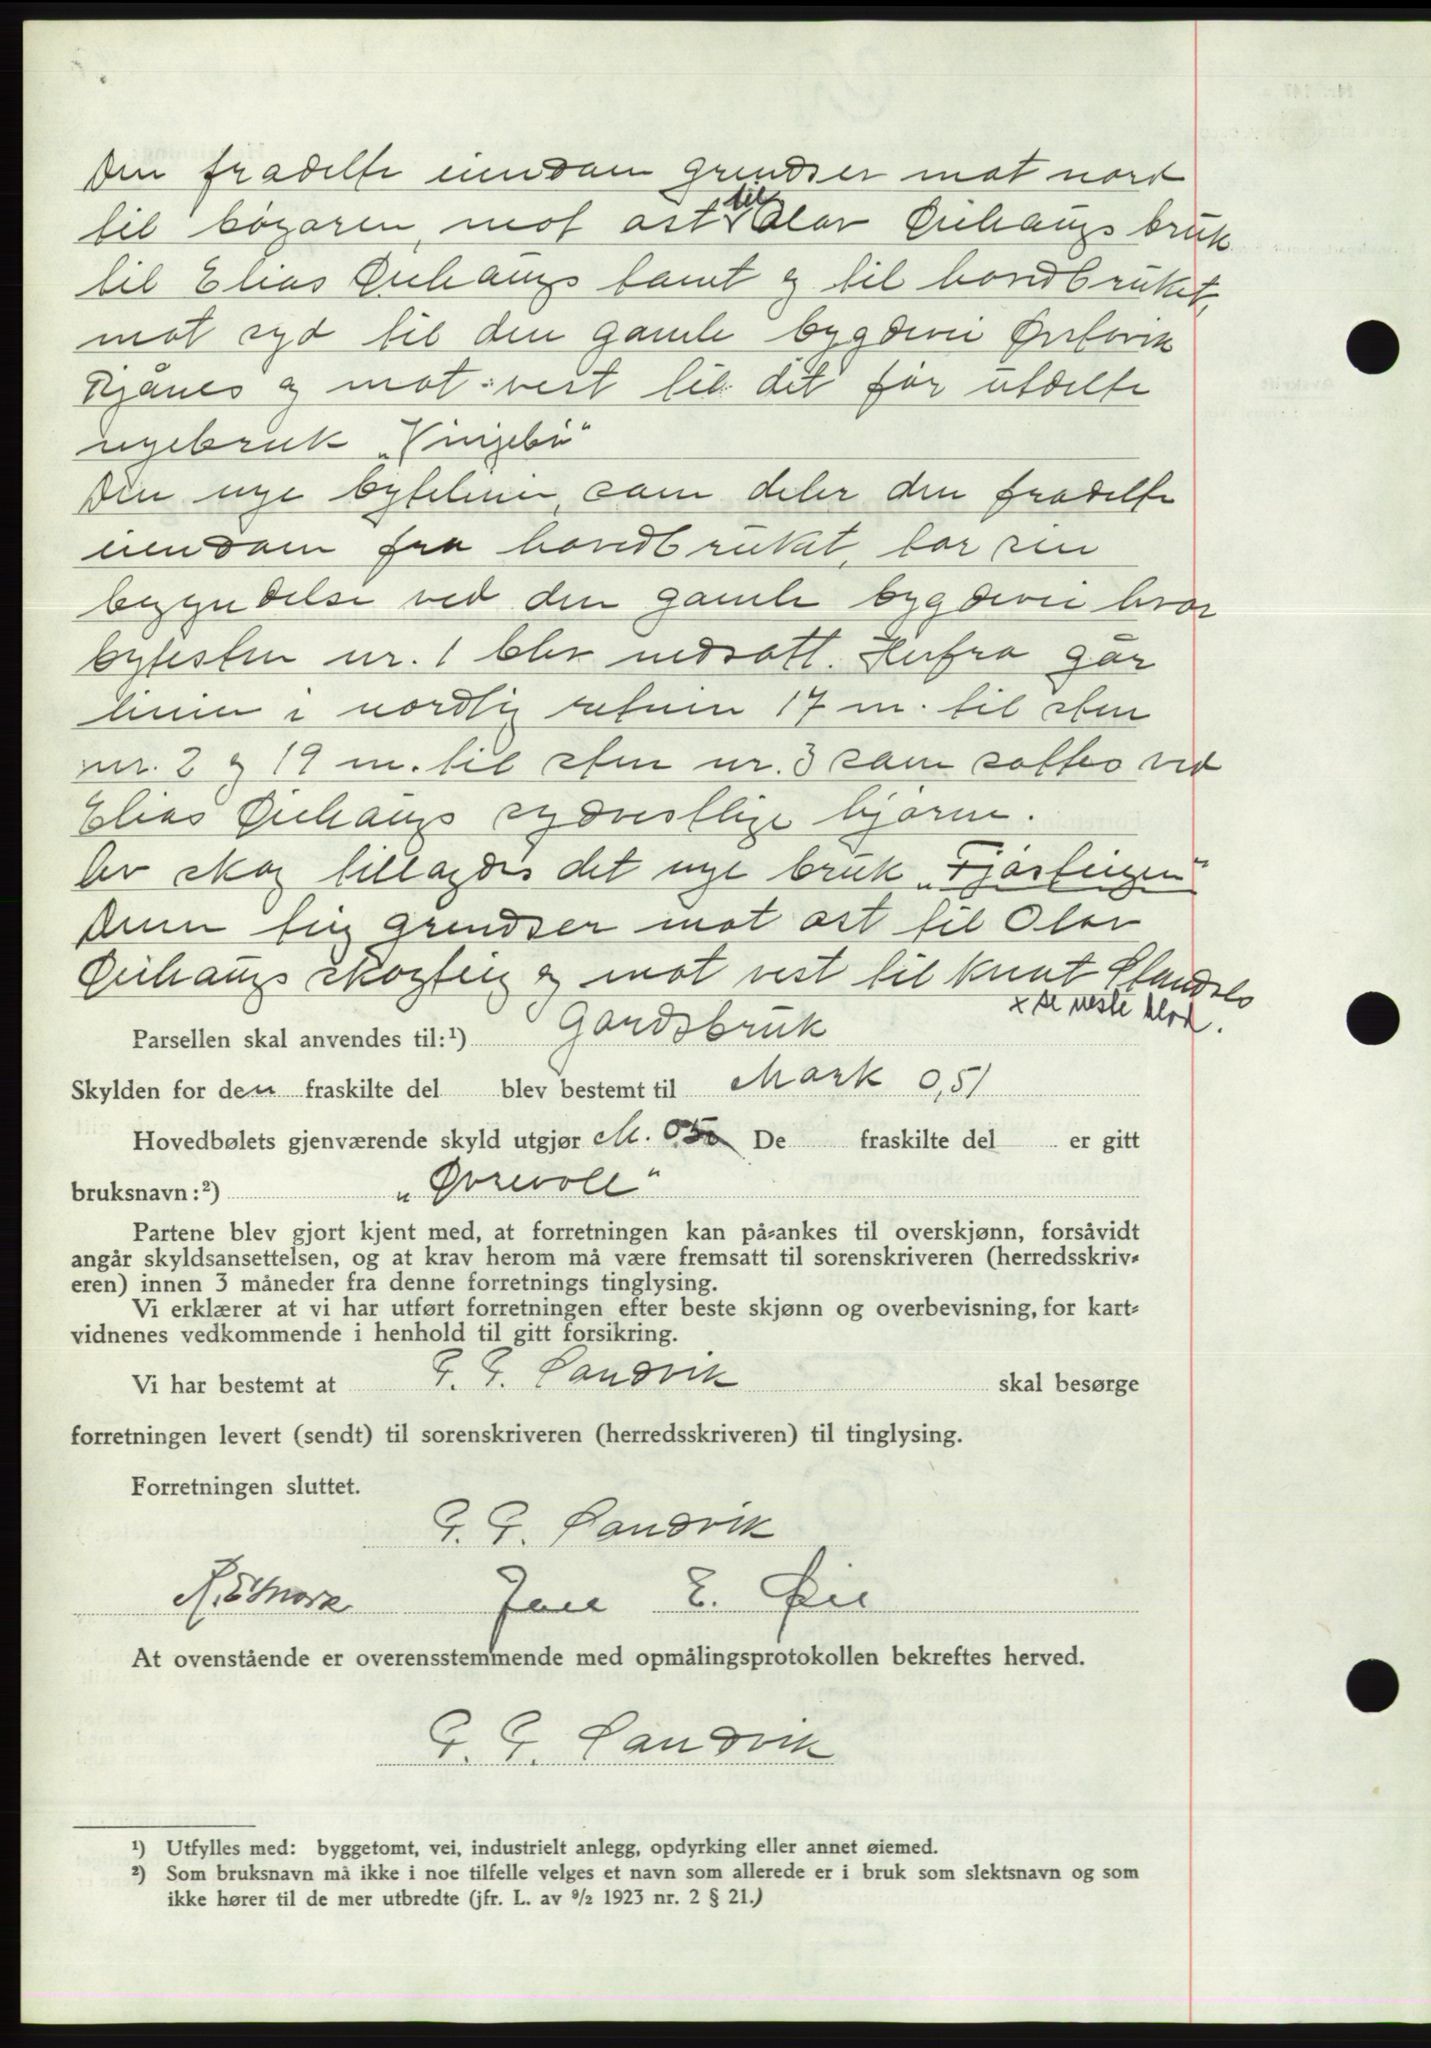 Den fradelte eiendom grendser mot nord
til bøgaren, mot ost til Olav Øiehaugs bruk
til Elias Øiehaugs tomt og til hovedbruket,
mot syd til den gamle bygdevei Ørstavik
Rjånes og mot vest til det før utdelte
nyebruk „Vingebø"
Den nye bytelinie, som deler den fradelte
eiendom fra hovedbruket, tar sin
begyndelse ved den gamle bygdevei hvor
bytesten nr. 1 blev nedsatt. Herfra går
linien i nordlig retning 17 m. til sten
nr. 2 og 19 m. til sten nr. 3 som sattes ved
Elias Øiehaugs sydvestlige hjørne.
Av skog tillagdes det nye bruk „Fjøsteigen"
Denne teig grendser mot ost til Olav
Øiehaugs skogteig og mot vest til Knut Standals
x se neste blad.
Parsellen skal anvendes til:¹) Gardsbruk
Skylden for den fraskilte del blev bestemt til Mark 0,51
Hovedbølets gjenværende skyld utgjør M. 0.50 De fraskilte del er gitt
bruksnavn:²) „Øvrevoll"
Partene blev gjort kjent med, at forretningen kan på-ankes til overskjønn, forsåvidt
angår skyldsansettelsen, og at krav herom må være fremsatt til sorenskriveren (herredsskriv-
eren) innen 3 måneder fra denne forretnings tinglysing.
Vi erklærer at vi har utført forretningen efter beste skjønn og overbevisning, for kart-
vidnenes vedkommende i henhold til gitt forsikring.
Vi har bestemt at G. G. Sandvik skal besørge
forretningen levert (sendt) til sorenskriveren (herredsskriveren) til tinglysing.
Forretningen sluttet.
G. G. Sandvik
R. E. Mork Jens E. Øie
At ovenstående er overensstemmende med opmålingsprotokollen bekreftes herved.
G. G. Sandvik
¹) Utfylles med: byggetomt, vei, industrielt anlegg, opdyrking eller annet øiemed.
²) Som bruksnavn må ikke i noe tilfelle velges et navn som allerede er i bruk som slektsnavn og som
ikke hører til de mer utbredte (jfr. L. av ⁹/₂ 1923 nr. 2 § 21.)